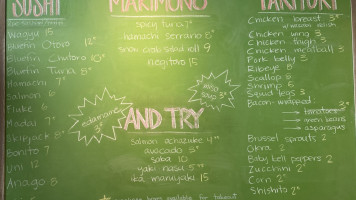 SUSHI
Wagyu 15
Bluefin Otoro 12
Bluefin Chutoro 10
Bluefin Tuna 8
Hamachi 7
Salmon
Fluke 6
Madai 7
Skipjack 8
Bonito 7
Uni 12
Anago 8
MAKIMONO
spicy tuna 7
hamachi serrano 8
snow crab salad roll 9
negitoro 15
edamame
miso soup 3
AND TRY
salmon ochazuke 4
avocado 3
soba 10
yaki nasu 5
maruyaki 15
available for takeout
YAKITORI
Chicken breast 3
Chicken wing 3
Chicken thigh 3
Chicken meatball 3
Pork belly 3
Ribeye 8
Scallop 6
Shrimp 5
Squid legs 3
Bacon-wrapped
→ tomatoes
→ green beans
→ asparagus
Brussel sprouts 2
Okra 2
Baby bell peppers 2
Zucchini 2
Corn 2
Shishito 2